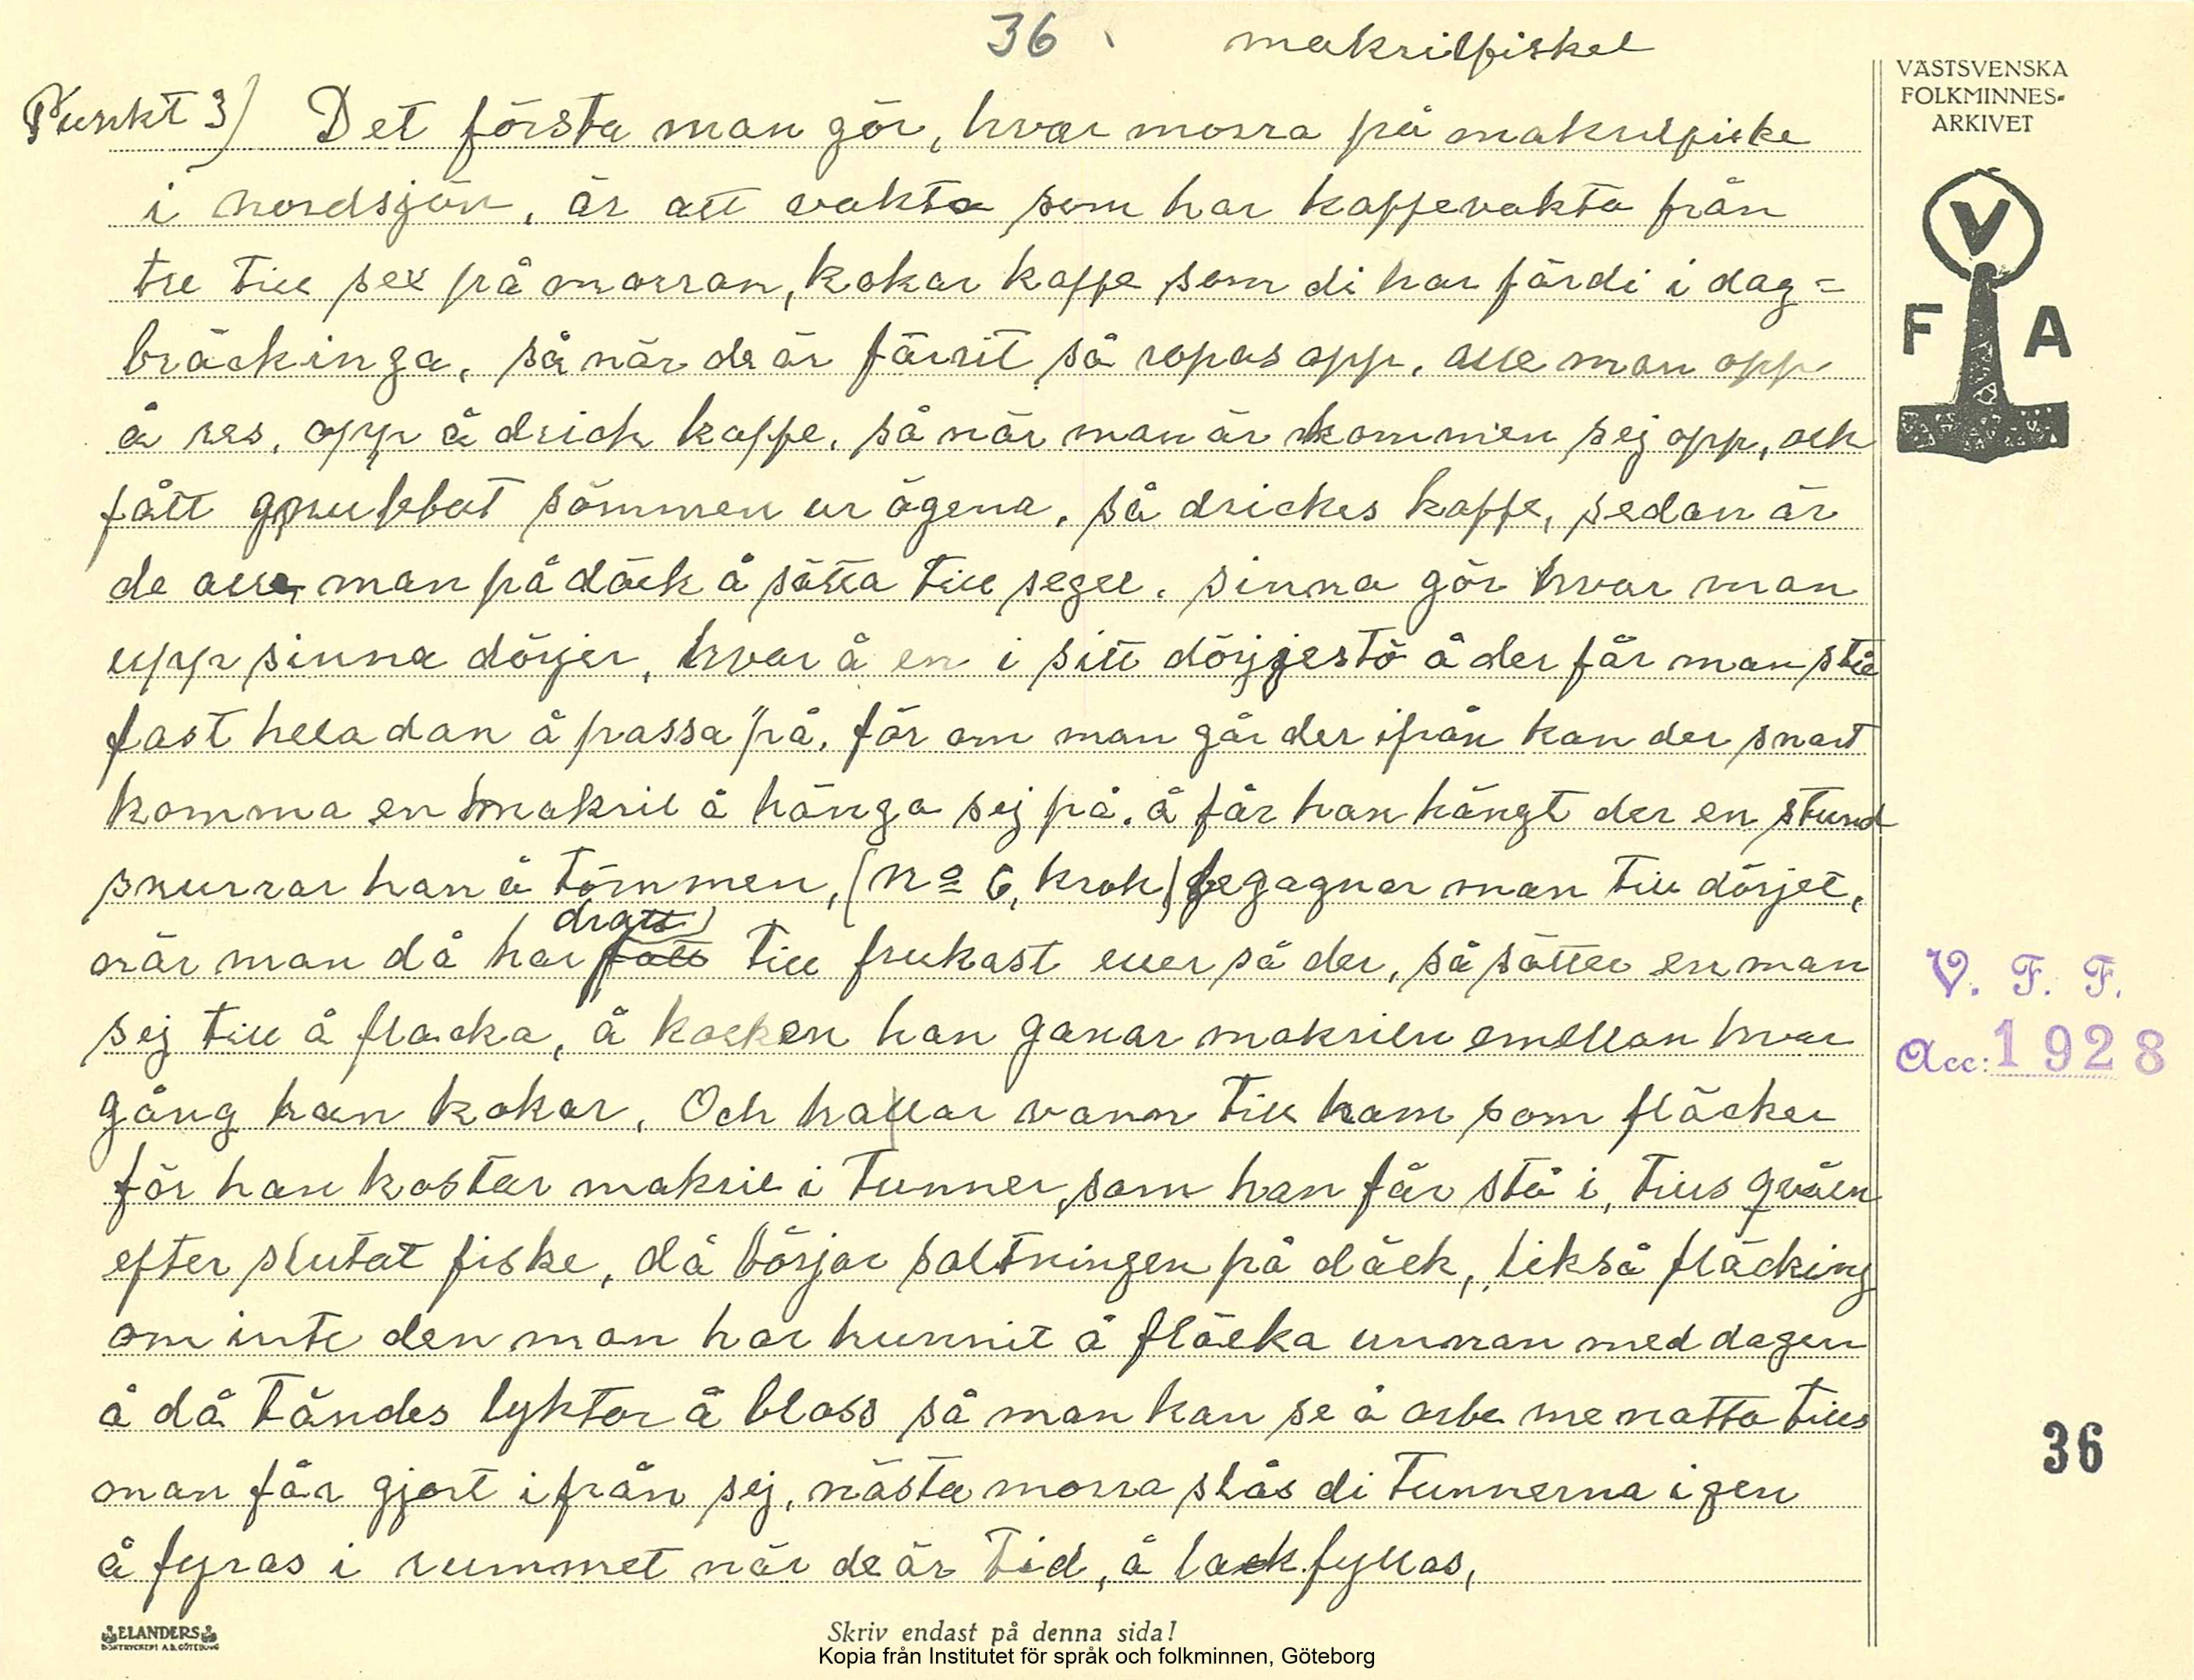 36 makrilfisket
VÄSTSVENSKA
FOLKMINNES-
ARKIVET
V
F A
Punkt 3) Det första man gör, hvar morra på makrilfiske
i nordsjön, är att vakta som har kaffevakta från
tre till sex på morran, kokar kaffe som di har färdi i dag=
bräckinga, så när de är färrit så ropas opp, alle man opp
å res, opp å drick kaffe, så när man är kommen sej opp, och
fått gnubbat sömmen ur ögena, så drickes kaffe, sedan är
de alle man på däck å sätta till segel. sinna gör hvar man
upp sinna dörjer, hvar å en i sitt dörjestö å der får man stå
fast hela dan å passa på, för om man går der ifrån kan der snart
komma en makril å hänga sej på. å får han hängt der en stund
snurrar han å tömmen, (no 6, krok) begagnar man till dörjet,
dratt
när man då har fått till frukast eller så der, så sätter en man
sej till å flacka, å kocken han ganar makrilen emellan hvar
gång han kokar. Och hallar vann till ham som fläcker
för han kastar makril i tunner, som han får stå i, tills qvälen
efter slutat fiske, då börjar saltningen på däck, likså fläcking
om inte den man har hunnit å fläcka unnan med dagen
å då tändes lyktor å bloss så man kan se å arbe me natta tills
man får gjort ifrån sej, nästa morra slås di tunnerna igen
å fyras i rummet när de är tid, å lackfyllas,
V. F. F.
Acc: 1928
36
ELANDERS
BOKTRYCKERI A.B. GÖTEBORG
Skriv endast på denna sida!
Kopia från Institutet för språk och folkminnen, Göteborg